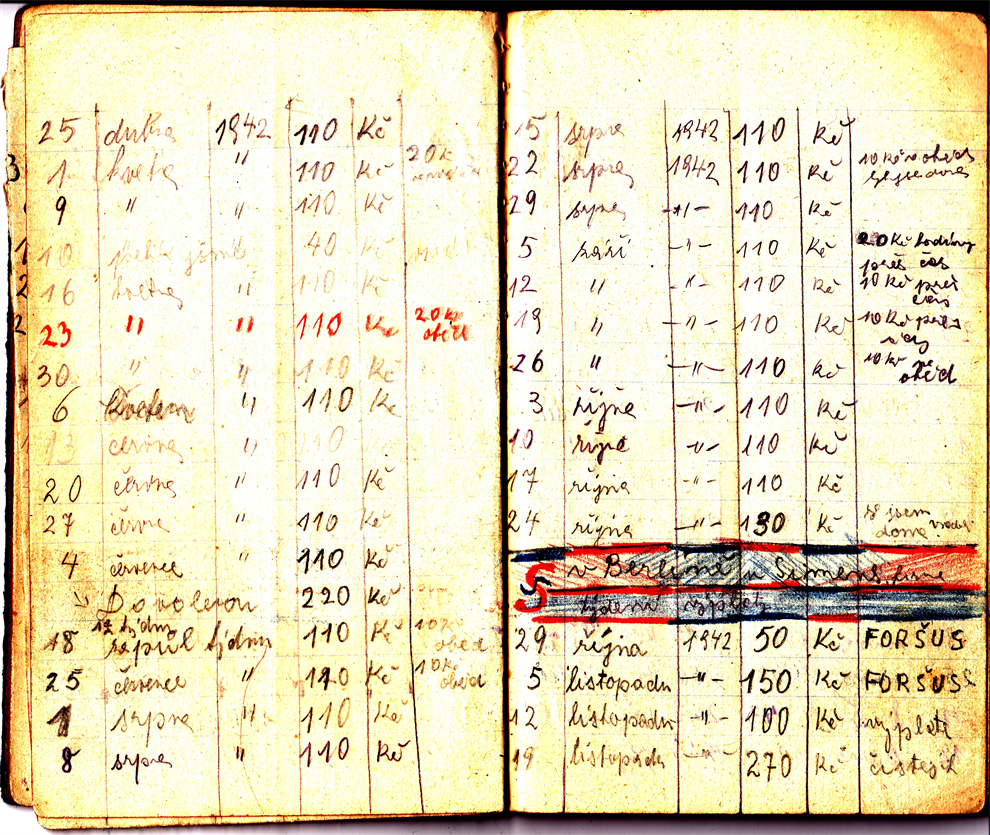 25 dubna 1942 110 Kč
1 května " 110 Kč 20 K
9 " " 110 Kč
10 40 Kč
16 května " 110 Kč
23 " " 110 Kč 20 Kč oběd
30 " " 110 Kč
6 " 110 Kč
13 června " 110 Kč
20 června " 110 Kč
27 června " 110 Kč
4 července 110 Kč
Dovolenou 220 Kč
18 " 110 Kč 10 Kč oběd
25 července " 110 Kč 10 Kč oběd
1 srpna " 110 Kč
8 srpna " 110 Kč
15 srpna 1942 110 Kč
22 srpna 1942 110 Kč 10 Kč
29 srpna -"- 110 Kč
5 září -"- 110 Kč 20 Kč hodiny
přes čas
12 " -"- 110 Kč 10 Kč přes
čas
19 " -"- 110 Kč 10 Kč přes
26 " -"- 110 Kč 10 Kč
oběd
3 října -"- 110 Kč
10 října -"- 110 Kč
17 října -"- 110 Kč
24 října -"- 130 Kč jsem
doma
v Berlíně u Simens
týdenní výplata
29 října 1942 50 Kč FORŠUS
5 listopadu -"- 150 Kč FORŠUS
12 listopadu -"- 100 Kč výplati
19 listopadu -"- 270 Kč